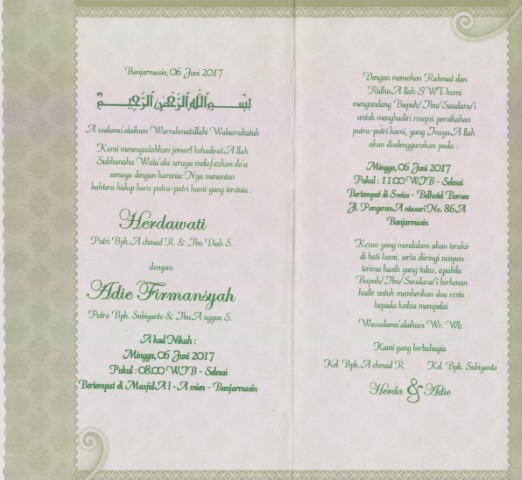 Banjarmasin, 06 Juni 2017
بسم الله الرحمن الرحيم
Assalamu'alaikum Warrahmatullahi Wabarrakatuh
Kami menengadahkan jemari kehadirat Allah
Subhanahu Wata'ala seraya melafazkan do'a
semoga dengan karunia-Nya menuntun
bahtera hidup baru putra-putri kami yang tercinta :
Herdawati
Putri Bph. Achmad R. & Ibu Diah S.
dengan
Adie Firmansyah
Putra Bph. Subiyanto & Ibu Anggun S.
Akad Nikah :
Minggu, 06 Juni 2017
Pukul : 08.00 WTB - Selesai
Bertempat di Masjid Al-Amien - Banjarmasin
Dengan memohon Rahmat dan
Ridho Allah SWT. kami
mengundang Bapak/Ibu/Saudara/i
untuk menghadiri resepsi pernikahan
putra-putri kami, yang Insya Allah
akan diselenggarakan pada :
Minggu, 06 Juni 2017
Pukul : 11.00 WTB - Selesai
Bertempat di Swiss - Belhotel Borneo
Jl. Pangeran Antasari No. 86A
Banjarmasin
Kesan yang mendalam akan terukir
di hati kami, serta diiringi ucapan
terima kasih yang tulus, apabila
Bapak/Ibu/Saudara/i berkenan
hadir untuk memberikan doa restu
kepada kedua mempelai
Wassalamu'alaikum Wr. Wb.
Kami yang berbahagia
Kel. Bph. Achmad R. Kel. Bph. Subiyanto
Herda & Adie